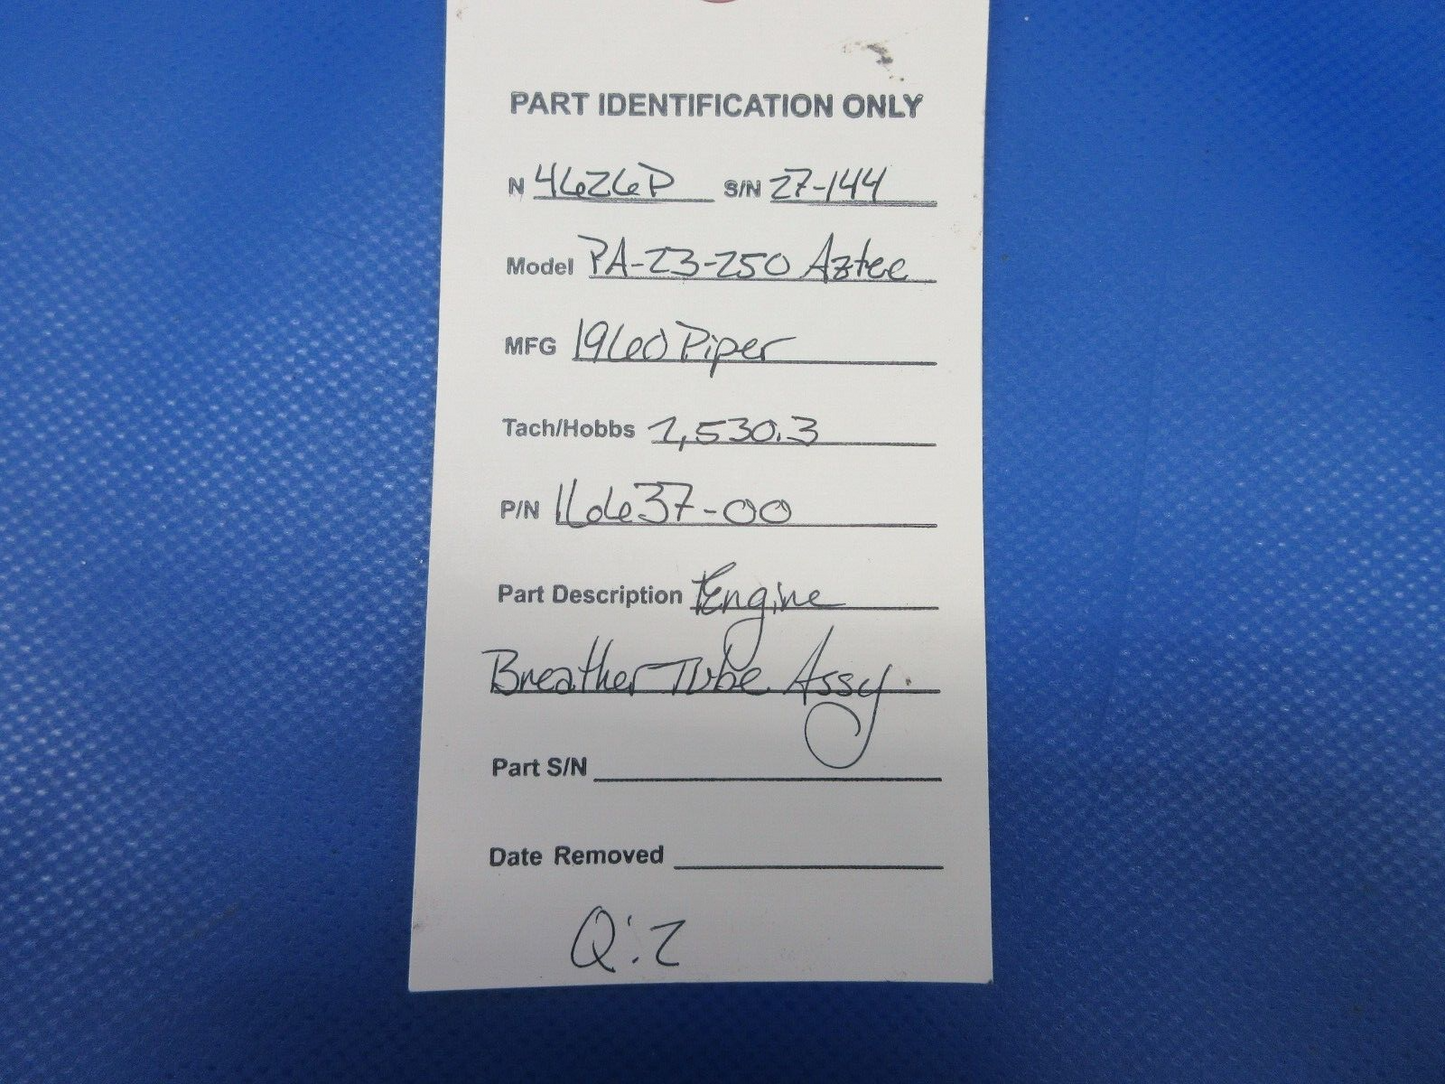 PART IDENTIFICATION ONLY
N 4626P S/N 27-144
Model PA-23-250 Aztec
MFG 1960 Piper
Tach/Hobbs 2,530.3
P/N 16637-00
Part Description Engine
Breather Tube Assy.
Part S/N
Date Removed
Q:2